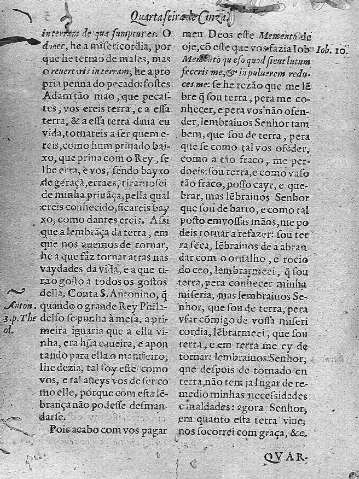 Quartafeira de Cinza.
interrem de qua sumptus es. O
dizer, he a misericordia, por
que he terrao de males, mas
o reuertaris in terram, he a pro
pria penna do pecado: foste s
Adam tão mao, que pecas-
tes, vos ereis terra, e a essa
terra, & a essa terra daua eu
vida, tornareis a ser quem e-
reis, como hum priuado bai-
xo, que priua com o Rey, se
lhe erra, e vos, sendo bayxo
de geração, erraes, tiramos ei
de minha priuãça, pella qual
ereis conhecido, ficareis bay
xo, como dantes ereis. Assi
que a lembrãça da terra, em
que nos auemos de tornar,
he a que faz tornar atras nas
vaydades da vida, e a que ti-
ra o gosto a todos os gostos
della. Conta S. Antonino, q̃
quando o grande Rey Phila-
delfo se punha á mesa, a pri-
meira iguaria que a ella vi-
nha, era hũa caueira, e apon
tando para ella o mantieiro,
lhe dezia, tal foy este como
vos, e tal aueys vos de ser co
mo elle, porque com esta lẽ-
brança não podesse desman-
darse.
Pois acabo com vos pagar
Anton.
3. p. The
ol.
meu Deos este Memento de
oje, cõ este que vos fazia Iob:
Memento quæso quod sicut lutum
feceris me, & in puluerem redu-
ces me: se he rezão que me lẽ
bre q̃ sou terra, pera me co-
nhecer, e pera vos não ofen-
der, lembraiuos Senhor tam
bem, que sou de terra, pera
que se como tal vos ofẽder,
como a tão fraco, me per-
doeis: sou terra, e como vaso
tão fraco, posso cayr, e que-
brar, mas lẽbraiuos Senhor
que sou de barro, e como tal
posto em vossas mãos, me po
deis tornar a refazer: sou ter
ra seca, lẽbraiuos de a abran
dar com o orualho, e rocio
do ceo, lembraime ei, q̃ sou
terra, pera conhecer minha
miseria, mas lembraiuos Se-
nhor, que sou de terra, pera
vsar cõmigo de vossa miseri
cordia, lẽbrarme ei, que sou
terra, e em terra me ey de
tornar: lembraiuos Senhor,
que despois de tornado em
terra, não tem ja lugar de re-
medio minhas necessidades
e maldades: agora Senhor,
em quanto esta terra viue,
nos socorrei com graça, &c.
Iob. 10.
QVAR-